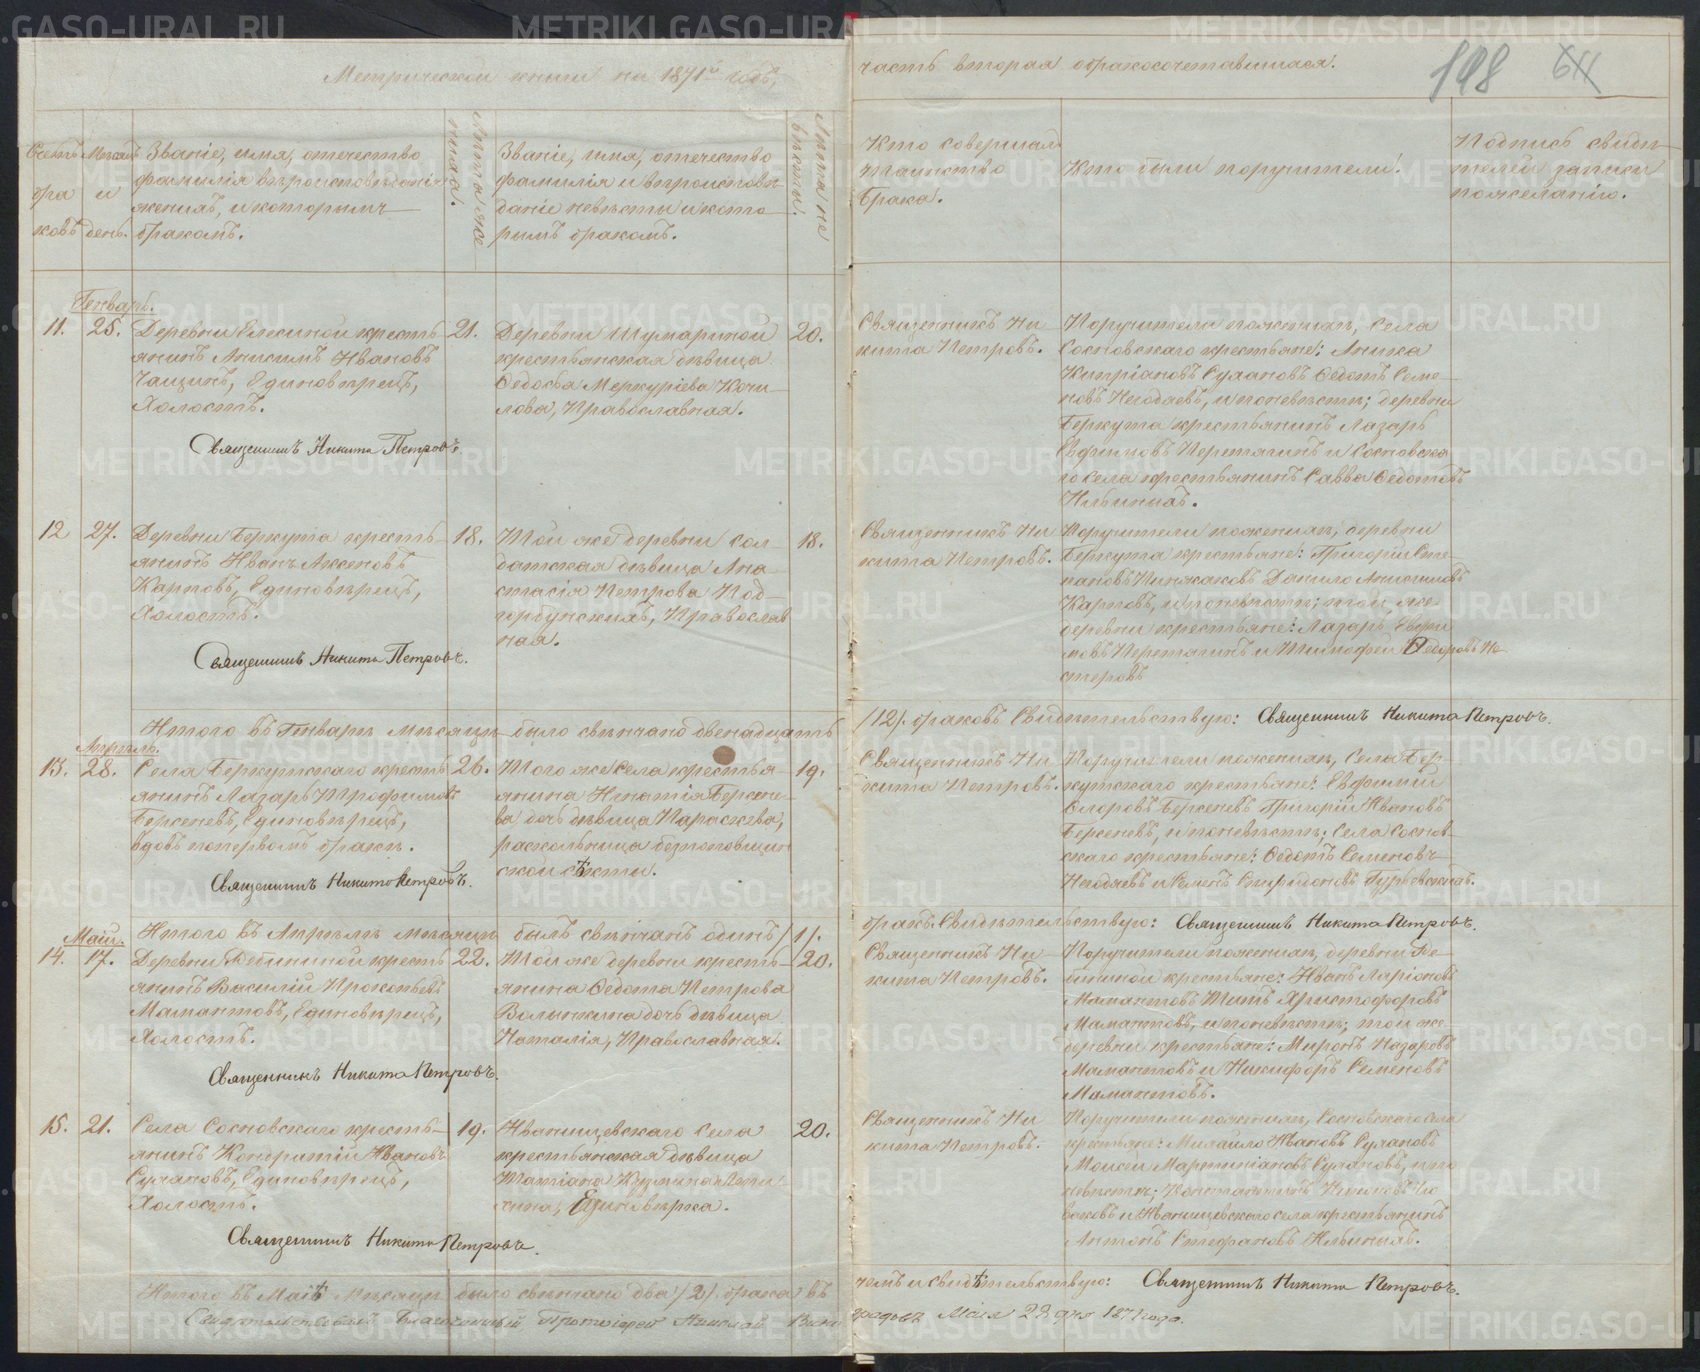 Метрической книги на 1871й годъ,
часть вторая о бракосочетавшихся.
198
611
Счетъ бра ковъ
Месяцъ и день.
Званіе, имя, отечество
фамилія вѣроисповѣданія
жениха, и которымъ
бракомъ.
Лѣта же
ниха.
Званіе, имя, отечество
фамилія и вѣроисповѣ
даніе невѣсты и кото
рымъ бракомъ.
Лѣта не
вѣсты.
Кто совершал
таинство
брака.
Кто были поручители.
Подпись свидѣ
телей записи
по желанію.
Генварь.
11. 25.
Деревни Елесиной кресть
янинъ Анисимъ Ивановъ
Чащинъ, Единовѣрецъ,
Холостъ.
21.
Деревни Шумариной
крестьянская дѣвица
Ѳедосья Меркуріева Кочи
лова, Православная.
20.
Священникъ Ни
кита Петровъ.
Поручители по женихѣ, Села
Сосновскаго крестьяне: Аника
Кипріановъ Сулановъ Ѳедотъ Семе
новъ Негодяевъ, и по невѣстѣ; деревни
Беркута крестьянинъ Лазарь
Евфимовъ Перетягинъ и Сосновска
го села крестьянинъ Савва Ѳедотовъ
Ильиныхъ.
Священникъ Никита Петровъ.
12 27.
Деревни Беркута кресть
янинъ Иванъ Аксеновъ
Карповъ, Единовѣрецъ,
Холостъ.
18.
Той же деревни сол
датская дѣвица Ана
стасія Петрова Под
горбунскихъ, Православ
ная.
18.
Священникъ Ни
кита Петровъ.
Поручители по женихѣ, деревни
Беркута крестьяне: Григорій Сте
пановъ Пинжаковъ Данило Анисимовъ
Карповъ, и по невѣстѣ; той же
деревни крестьяне: Лазарь Евфи
мовъ Перетягинъ и Тимофей Ѳедоровъ Не
стеровъ
Священникъ Никита Петровъ.
Итого въ Генварѣ мѣсяцѣ было свѣнчано двенадцать
/12/. браковъ Свидѣтельствую: Священникъ Никита Петровъ.
Апрѣль.
13. 28.
Села Беркутскаго кресть
янинъ Лазарь Трофимовъ
Берсеневъ, Единовѣрецъ,
вдовъ по первомъ бракѣ.
26.
Того же села крестья
янина Игнатія Берсене
ва дочь дѣвица Параскева,
раскольница безпоповщин
ской секты.
19.
Священникъ Ни
кита Петровъ.
Поручители по женихѣ, Села Бер
кутскаго крестьяне: Евфимій
Егоровъ Берсеневъ Григорій Ивановъ
Берсеневъ, и по невѣстѣ; Села Соснов
скаго крестьяне: Ѳедотъ Семеновъ
Негодяевъ и Семенъ Спиридоновъ Гурьевскихъ.
Священникъ Никита Петровъ.
Итого въ Апрѣлѣ мѣсяцѣ былъ свѣнчанъ одинъ /1/.
бракъ. Свидѣтельствую: Священникъ Никита Петровъ.
Май.
14. 17.
кресть
янинъ Василій Прокопьевъ
Мамантовъ, Единовѣрецъ,
Холостъ.
22.
Той же деревни кресть
янина Ѳедота Петрова
Волынкина дочь дѣвица
Наталія, Православная.
20.
Священникъ Ни
кита Петровъ.
Поручители по женихѣ, деревни
крестьяне: Иванъ Ларіоновъ
Мамантовъ Титъ Христофоровъ
Мамантовъ, и по невѣстѣ; той же
деревни крестьяне: Миронъ Назаровъ
Мамантовъ и Никифоръ Семеновъ
Мамантовъ.
Священникъ Никита Петровъ.
15. 21.
Села Сосновскаго кресть
янинъ Кондратій Ивановъ
Сулановъ, Единовѣрецъ,
Холостъ.
19.
Иванищевскаго Села
крестьянская дѣвица
Татіана
Единовѣрка.
20.
Священникъ Ни
кита Петровъ.
Поручители по женихѣ, Сосновскаго села
крестьяне: Михайло Ивановъ Сулановъ
Моисей Мартиніановъ Сулановъ, и по
невѣстѣ; Константинъ
и Иванищевскаго села крестьянинъ
Антонъ Стефановъ Ильиныхъ.
Священникъ Никита Петровъ.
Итого въ Маіѣ мѣсяцѣ было свѣнчано два /2/. брака въ
чемъ и свидѣтельствую: Священникъ Никита Петровъ.
Свидѣтельствовалъ Благочинный Протоіерей Николай
Маія 22 дня 1871 года.
METRIKI.GASO-URAL.RU